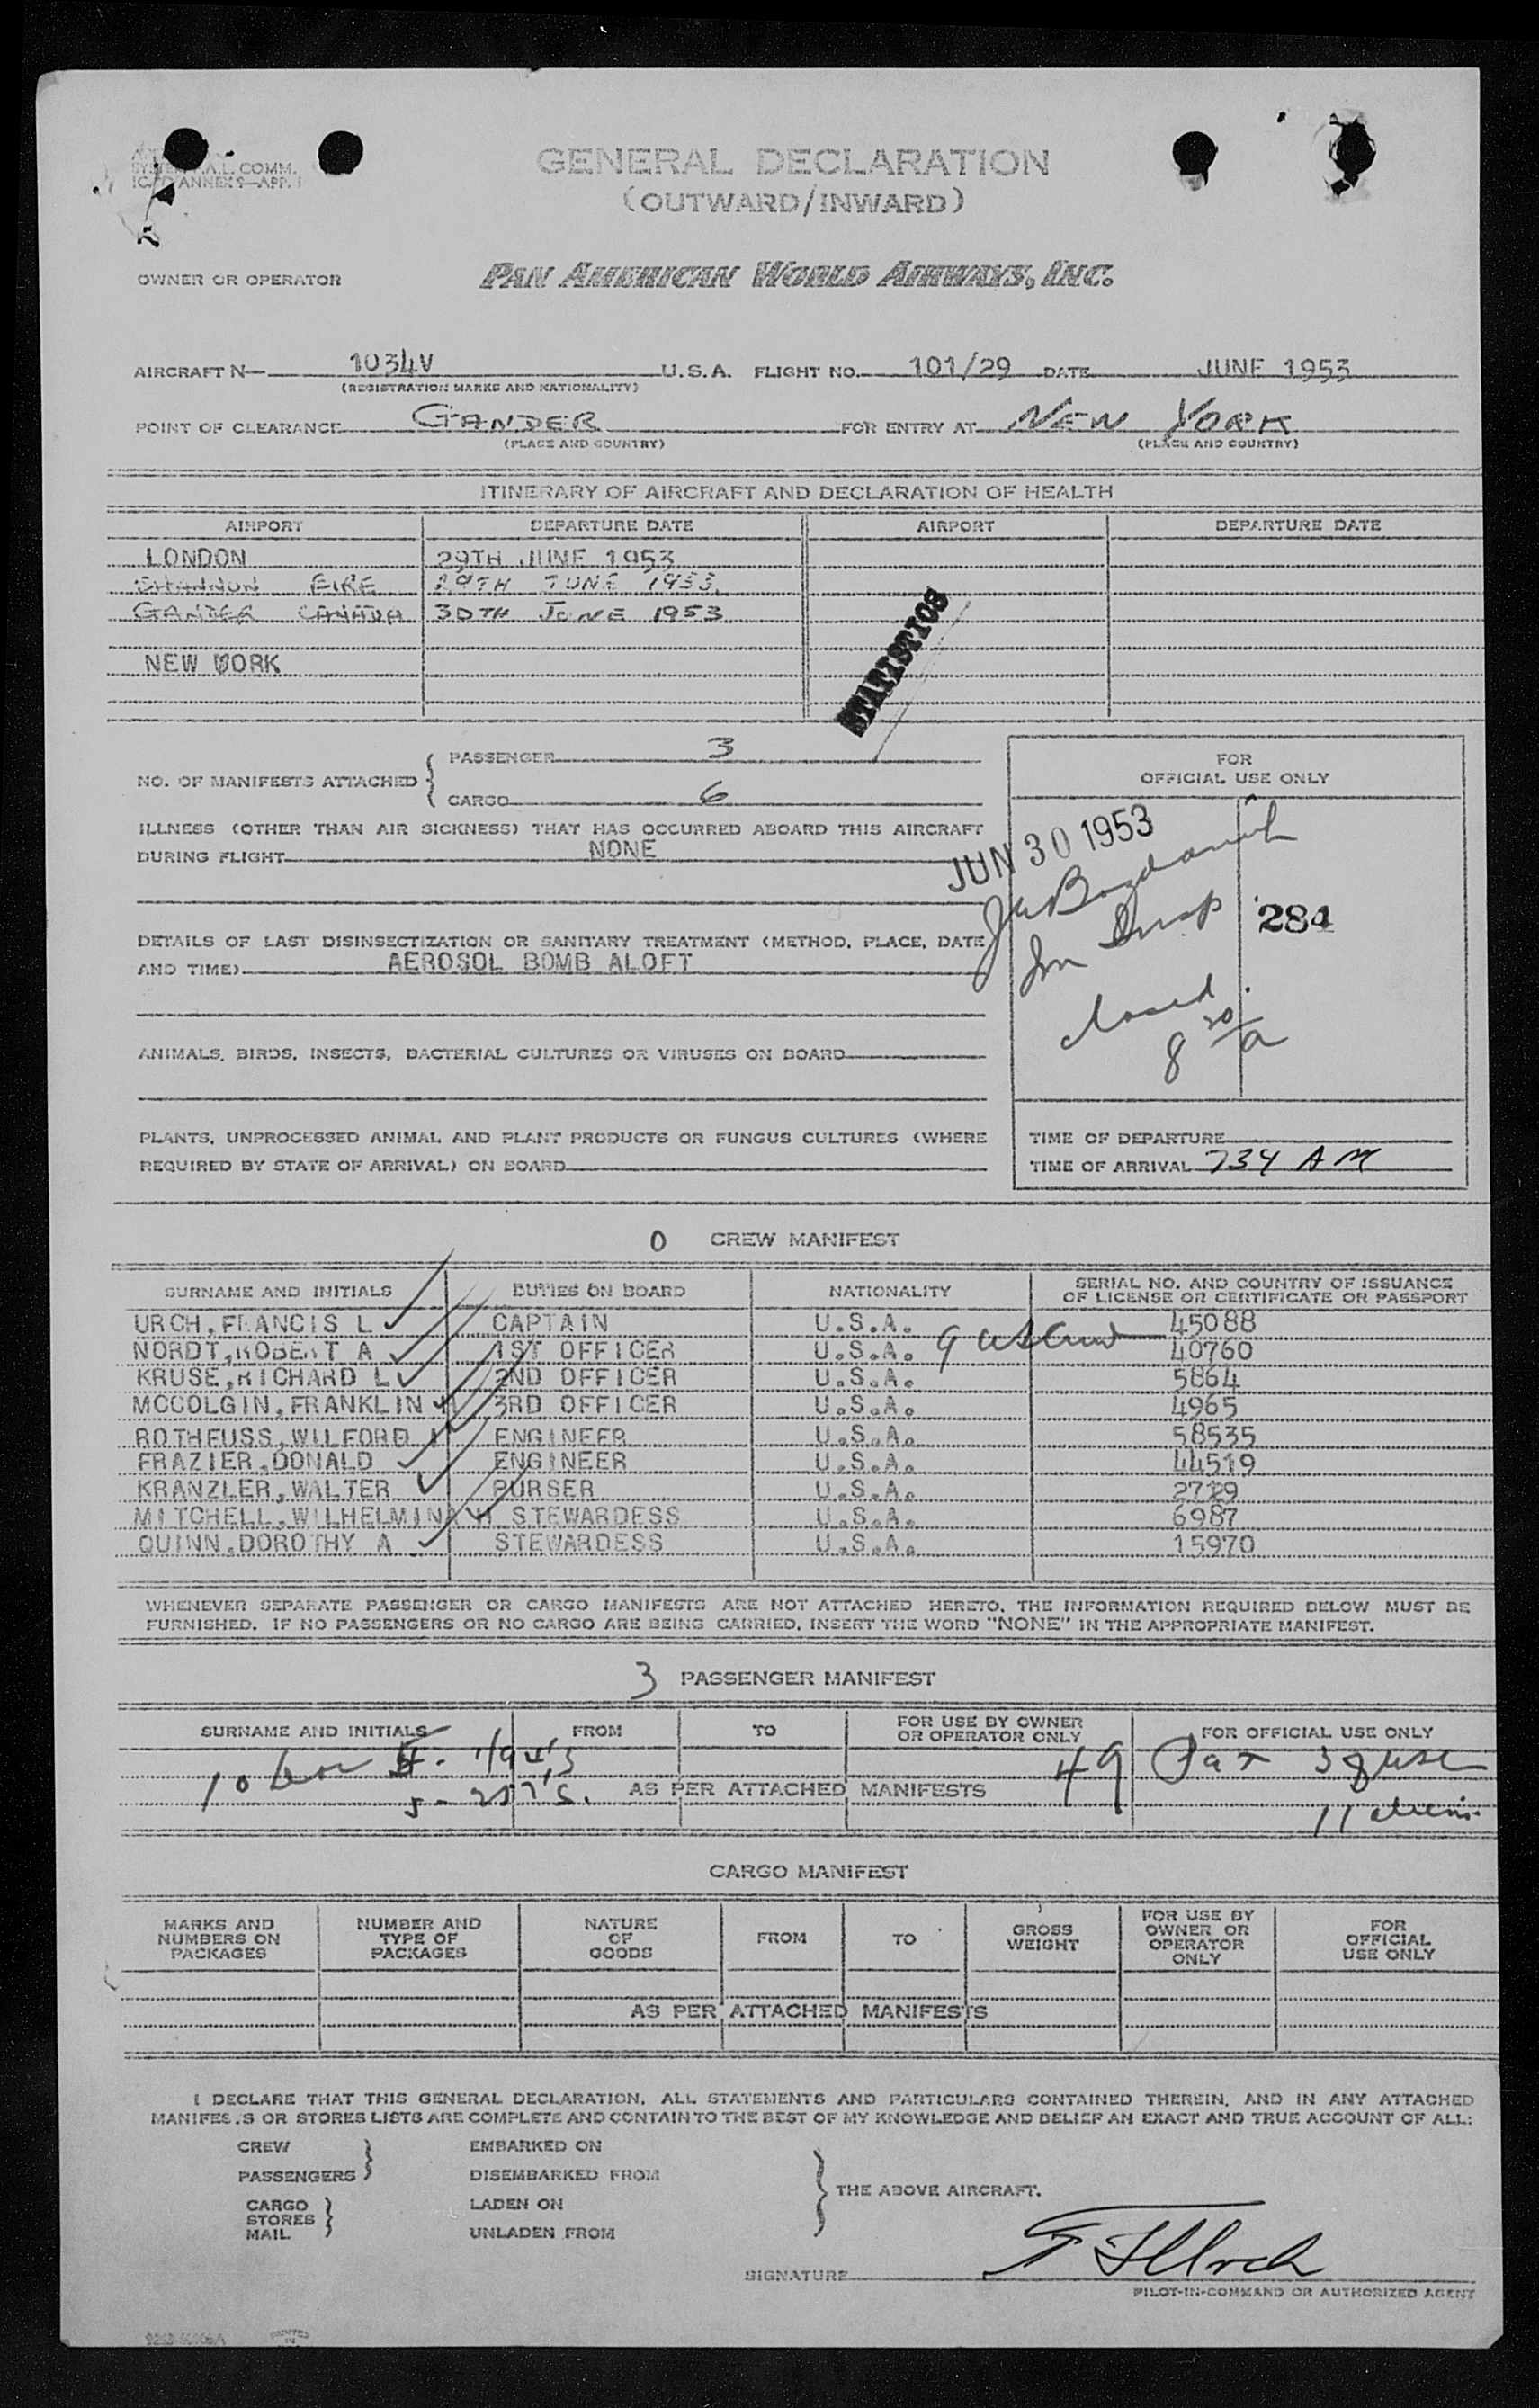 COMM.
ANNEX 9—APP. I
GENERAL DECLARATION
(OUTWARD/INWARD)
OWNER OR OPERATOR PAN AMERICAN WORLD AIRWAYS, INC.
AIRCRAFT N— 1034V U.S.A. FLIGHT NO. 101/29 DATE JUNE 1953
(REGISTRATION MARKS AND NATIONALITY)
POINT OF CLEARANCE GANDER FOR ENTRY AT NEW YORK
(PLACE AND COUNTRY) (PLACE AND COUNTRY)
ITINERARY OF AIRCRAFT AND DECLARATION OF HEALTH
AIRPORT DEPARTURE DATE AIRPORT DEPARTURE DATE
LONDON 29TH JUNE 1953
SHANNON EIRE 29TH JUNE 1953.
GANDER CANADA 30TH JUNE 1953
NEW YORK
STATISTICS
NO. OF MANIFESTS ATTACHED { PASSENGER 3
CARGO 6
FOR
OFFICIAL USE ONLY
ILLNESS (OTHER THAN AIR SICKNESS) THAT HAS OCCURRED ABOARD THIS AIRCRAFT
DURING FLIGHT NONE
JUN 30 1953
284
DETAILS OF LAST DISINSECTIZATION OR SANITARY TREATMENT (METHOD, PLACE, DATE
AND TIME) AEROSOL BOMB ALOFT
closed
8 30/a
ANIMALS, BIRDS, INSECTS, BACTERIAL CULTURES OR VIRUSES ON BOARD
PLANTS, UNPROCESSED ANIMAL AND PLANT PRODUCTS OR FUNGUS CULTURES (WHERE
REQUIRED BY STATE OF ARRIVAL) ON BOARD
TIME OF DEPARTURE
TIME OF ARRIVAL 734 AM
0 CREW MANIFEST
SURNAME AND INITIALS DUTIES ON BOARD NATIONALITY SERIAL NO. AND COUNTRY OF ISSUANCE
OF LICENSE OR CERTIFICATE OR PASSPORT
URCH, FRANCIS L CAPTAIN U.S.A. 45088
NORDT, ROBERT A 1ST OFFICER U.S.A. 40760
KRUSE, RICHARD L 2ND OFFICER U.S.A. 5864
MCCOLGIN, FRANKLIN 3RD OFFICER U.S.A. 4965
ROTHFUSS, WILFORD ENGINEER U.S.A. 58535
FRAZIER, DONALD ENGINEER U.S.A. 44519
KRANZLER, WALTER PURSER U.S.A. 2729
MITCHELL, WILHELMINA H STEWARDESS U.S.A. 6987
QUINN, DOROTHY A STEWARDESS U.S.A. 15970
WHENEVER SEPARATE PASSENGER OR CARGO MANIFESTS ARE NOT ATTACHED HERETO, THE INFORMATION REQUIRED BELOW MUST BE
FURNISHED. IF NO PASSENGERS OR NO CARGO ARE BEING CARRIED, INSERT THE WORD "NONE" IN THE APPROPRIATE MANIFEST.
3 PASSENGER MANIFEST
SURNAME AND INITIALS FROM TO FOR USE BY OWNER
OR OPERATOR ONLY FOR OFFICIAL USE ONLY
49 Pax
AS PER ATTACHED MANIFESTS
CARGO MANIFEST
MARKS AND
NUMBERS ON
PACKAGES
NUMBER AND
TYPE OF
PACKAGES
NATURE
OF
GOODS
FROM
TO
GROSS
WEIGHT
FOR USE BY
OWNER OR
OPERATOR
ONLY
FOR
OFFICIAL
USE ONLY
AS PER ATTACHED MANIFESTS
I DECLARE THAT THIS GENERAL DECLARATION, ALL STATEMENTS AND PARTICULARS CONTAINED THEREIN, AND IN ANY ATTACHED
MANIFES.S OR STORES LISTS ARE COMPLETE AND CONTAIN TO THE BEST OF MY KNOWLEDGE AND BELIEF AN EXACT AND TRUE ACCOUNT OF ALL:
CREW EMBARKED ON
PASSENGERS DISEMBARKED FROM
THE ABOVE AIRCRAFT.
CARGO LADEN ON
STORES
MAIL UNLADEN FROM
SIGNATURE F L Urch
PILOT-IN-COMMAND OR AUTHORIZED AGENT